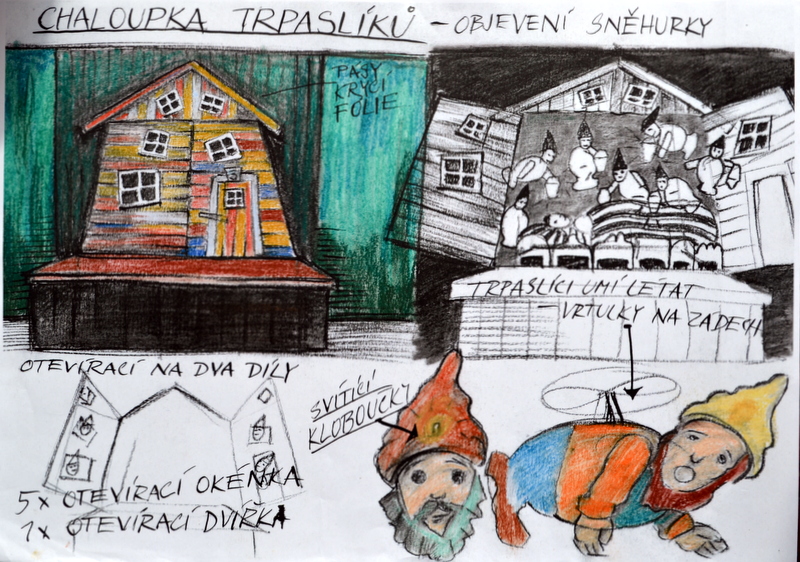 CHALOUPKA TRPASLÍKŮ - OBJEVENÍ SNĚHURKY
PAJY
KRYCÍ
FÓLIE
TRPASLÍCI UMÍ LÉTAT
- VRTULKY NA ZADECH
OTEVÍRACÍ NA DVA DÍLY
SVÍTÍCÍ
KLOBOUČKY
5x OTEVÍRACÍ OKÉNKA
1x OTEVÍRACÍ DVÍŘKA